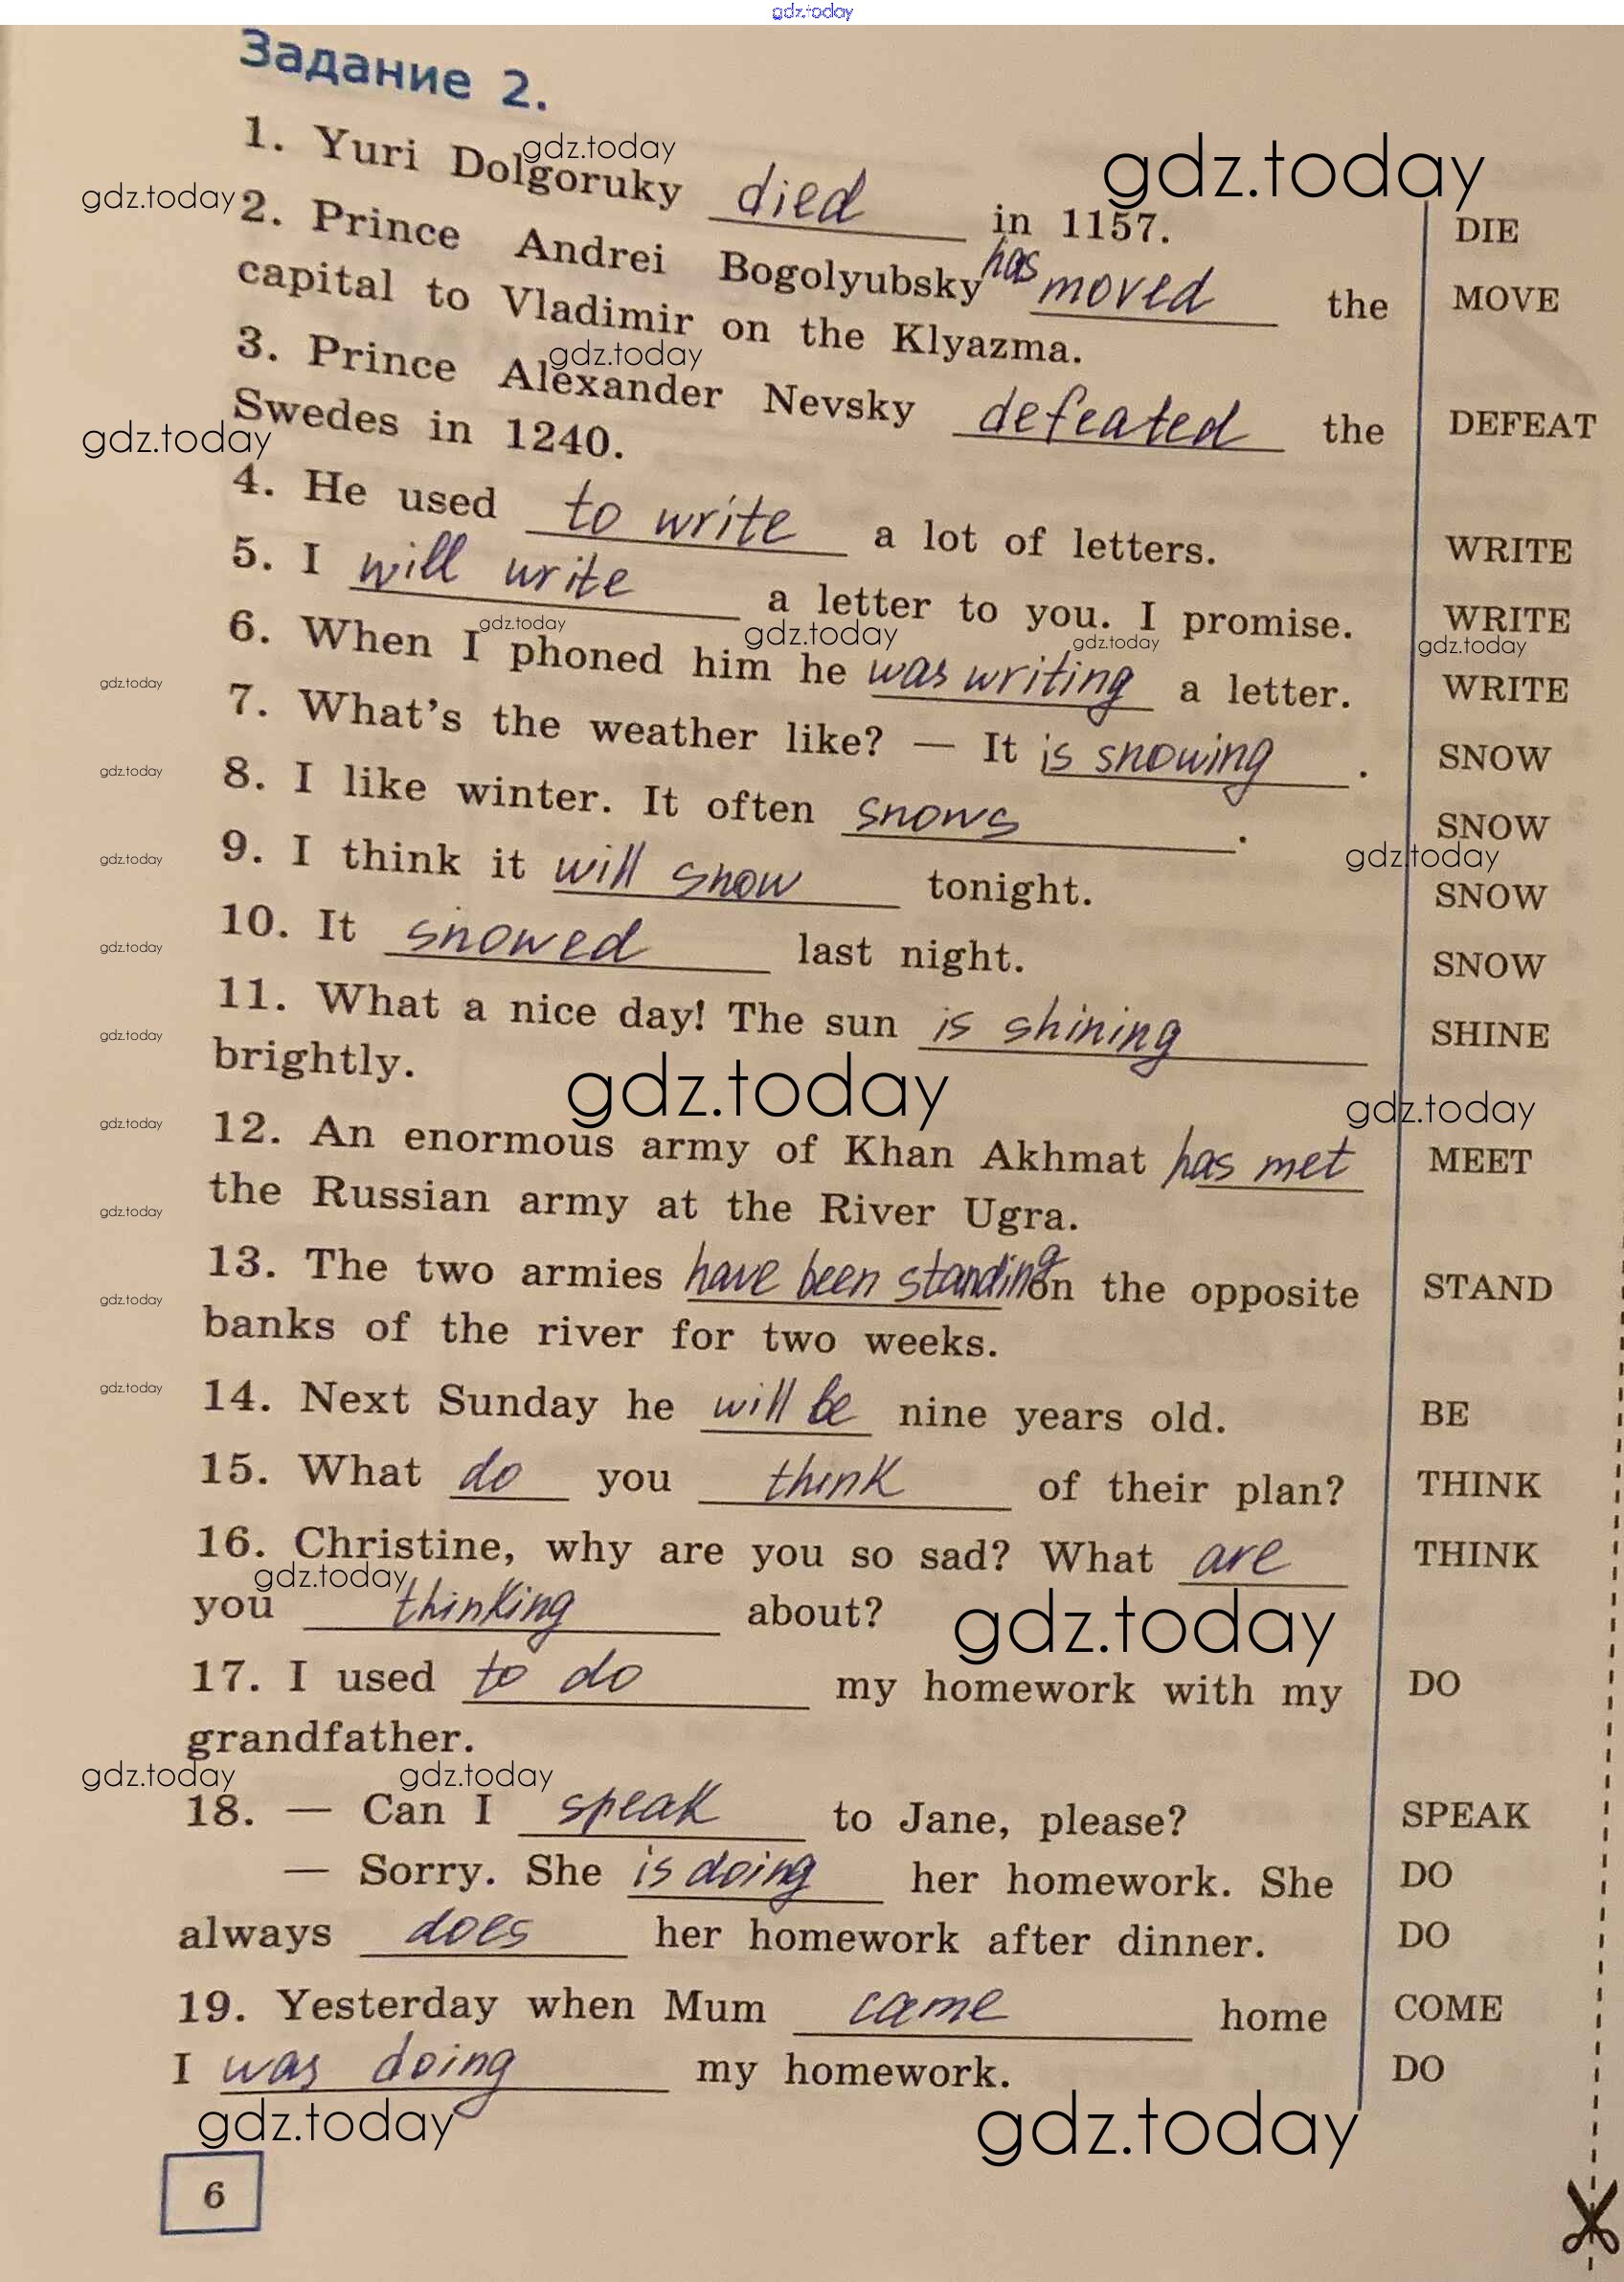 gdz.today
Задание 2.
1. Yuri Dolgoruky died in 1157. DIE
2. Prince Andrei Bogolyubsky has moved the MOVE
capital to Vladimir on the Klyazma.
3. Prince Alexander Nevsky defeated the DEFEAT
Swedes in 1240.
4. He used to write a lot of letters. WRITE
5. I will write a letter to you. I promise. WRITE
6. When I phoned him he was writing a letter. WRITE
7. What's the weather like? — It is snowing. SNOW
8. I like winter. It often snows. SNOW
9. I think it will snow tonight. SNOW
10. It snowed last night. SNOW
11. What a nice day! The sun is shining SHINE
brightly.
12. An enormous army of Khan Akhmat has met MEET
the Russian army at the River Ugra.
13. The two armies have been standing on the opposite STAND
banks of the river for two weeks.
14. Next Sunday he will be nine years old. BE
15. What do you think of their plan? THINK
16. Christine, why are you so sad? What are THINK
you thinking about?
17. I used to do my homework with my DO
grandfather.
18. — Can I speak to Jane, please? SPEAK
— Sorry. She is doing her homework. She DO
always does her homework after dinner. DO
19. Yesterday when Mum came home COME
I was doing my homework. DO
6